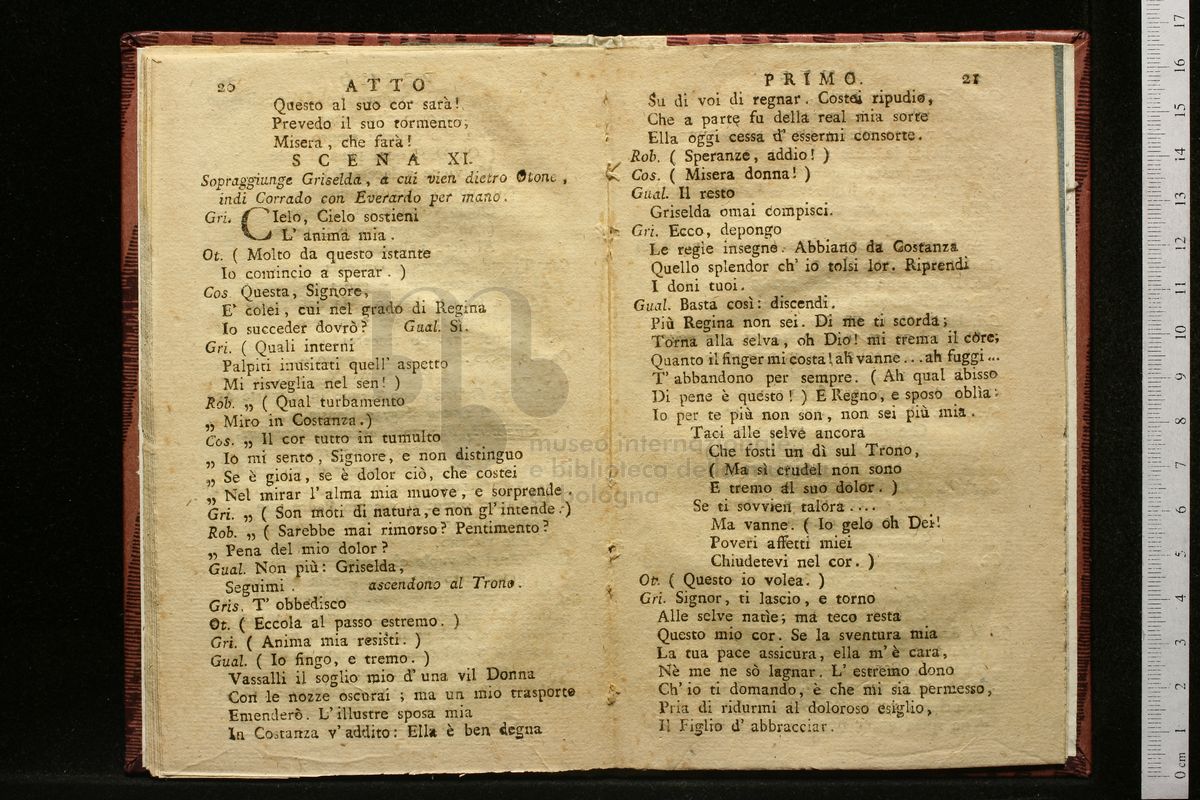 20 ATTO
Questo al suo cor sarà!
Prevedo il suo tormento;
Misera, che farà!
SCENA XI.
Sopraggiunge Griselda, a cui vien dietro Otone,
indi Corrado con Everardo per mano.
Gri. CIelo, Cielo sostieni
L' anima mia.
Ot. ( Molto da questo istante
Io comincio a sperar. )
Cos Questa, Signore,
E' colei, cui nel grado di Regina
Io succeder dovrò? Gual. Sì.
Gri. ( Quali interni
Palpiti inusitati quell' aspetto
Mi risveglia nel sen! )
Rob. „ ( Qual turbamento
„ Miro in Costanza. )
Cos. „ Il cor tutto in tumulto
„ Io mi sento, Signore, e non distinguo
„ Se è gioia, se è dolor ciò, che costei
„ Nel mirar l' alma mia muove, e sorprende.
Gri. „ ( Son moti di natura, e non gl' intende. )
Rob. „ ( Sarebbe mai rimorso? Pentimento?
„ Pena del mio dolor?
Gual. Non più: Griselda,
Seguimi. ascendono al Trono.
Gris. T' obbedisco
Ot. ( Eccola al passo estremo. )
Gri. ( Anima mia resisti. )
Gual. ( Io fingo, e tremo. )
Vassalli il soglio mio d' una vil Donna
Con le nozze oscurai; ma un mio trasporto
Emenderò. L' illustre sposa mia
In Costanza v' addito: Ella è ben degna
PRIMO. 21
Su di voi di regnar. Costei ripudio,
Che a parte fu della real mia sorte
Ella oggi cessa d' essermi consorte.
Rob. ( Speranze, addio! )
Cos. ( Misera donna! )
Gual. Il resto
Griselda omai compisci.
Gri. Ecco, depongo
Le regie insegne. Abbiano da Costanza
Quello splendor ch' io tolsi lor. Riprendi
I doni tuoi.
Gual. Basta così: discendi.
Più Regina non sei. Di me ti scorda;
Torna alla selva, oh Dio! mi trema il core;
Quanto il finger mi costa! ah vanne... ah fuggi...
T' abbandono per sempre. ( Ah qual abisso
Di pene è questo! ) E Regno, e sposo oblìa:
Io per te più non son, non sei più mia.
Taci alle selve ancora
Che fosti un dì sul Trono,
( Ma sì crudel non sono
E tremo al suo dolor. )
Se ti sovvien talora....
Ma vanne. ( Io gelo oh Dei!
Poveri affetti miei
Chiudetevi nel cor. )
Ot. ( Questo io volea. )
Gri. Signor, ti lascio, e torno
Alle selve natie; ma teco resta
Questo mio cor. Se la sventura mia
La tua pace assicura, ella m' è cara,
Nè me ne sò lagnar. L' estremo dono
Ch' io ti domando, è che mi sia permesso,
Pria di ridurmi al doloroso esiglio,
Il Figlio d' abbracciar.
museo internazionale
e biblioteca della musica
di bologna
0 cm 1 2 3 4 5 6 7 8 9 10 11 12 13 14 15 16 17